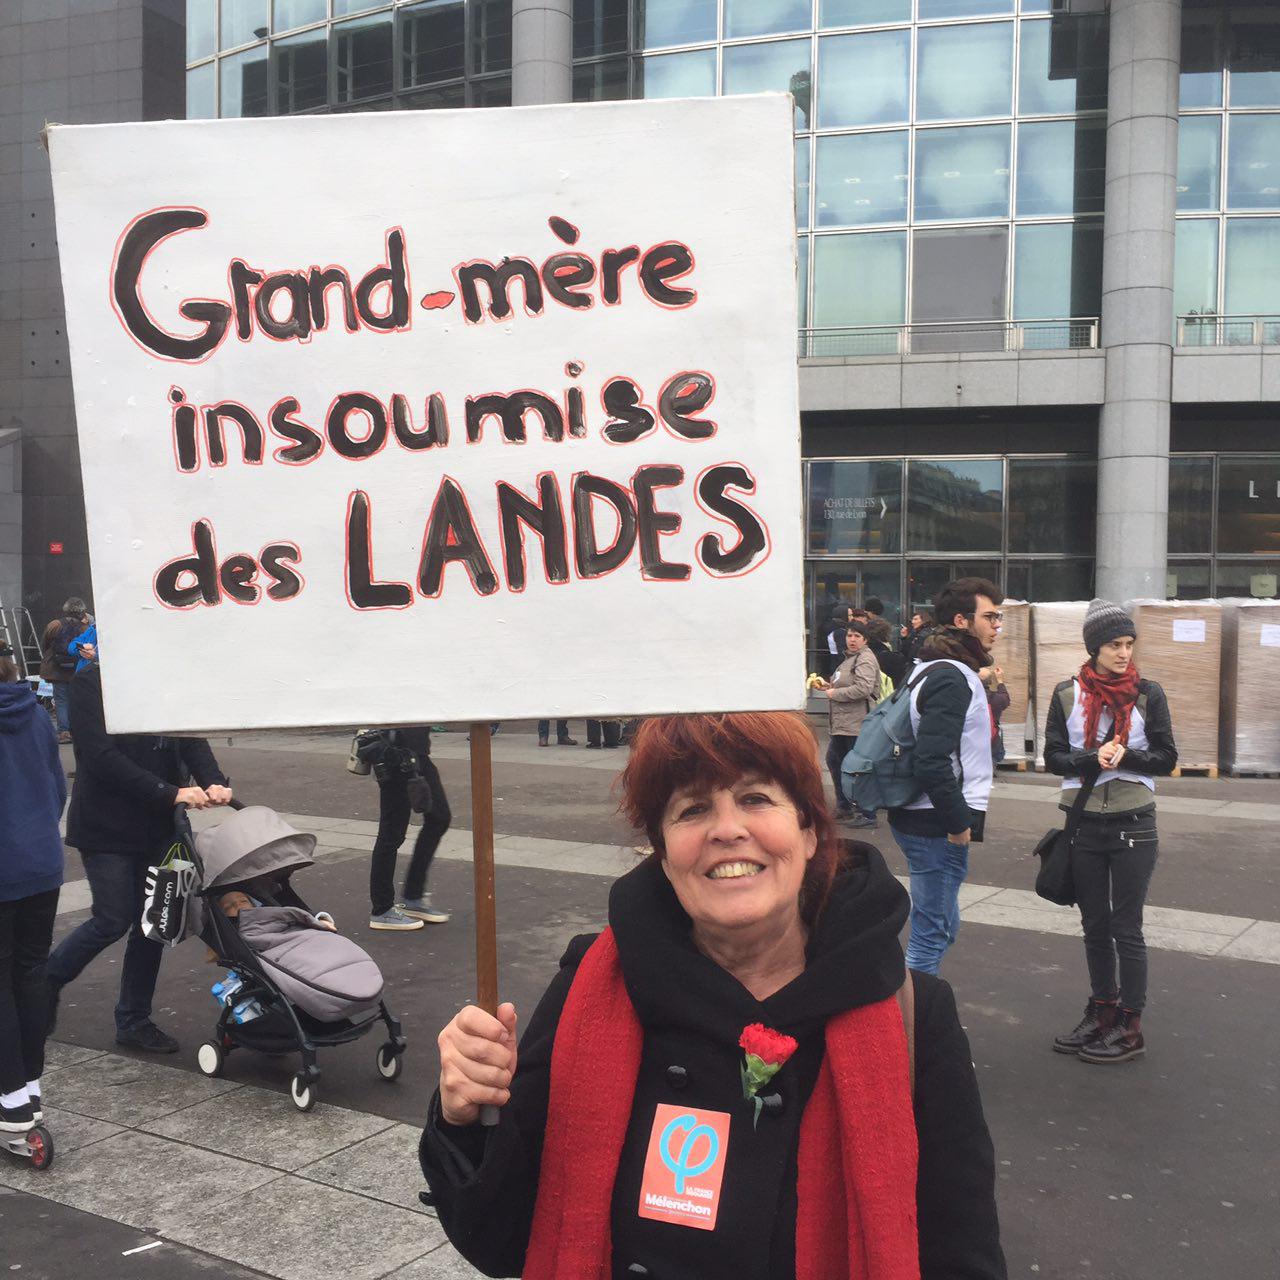 Grand-mère
insoumise
des LANDES
ACHAT DE BILLETS
130, rue de Lyon
JULES.com
LA FRANCE
INSOUMISE
Mélenchon